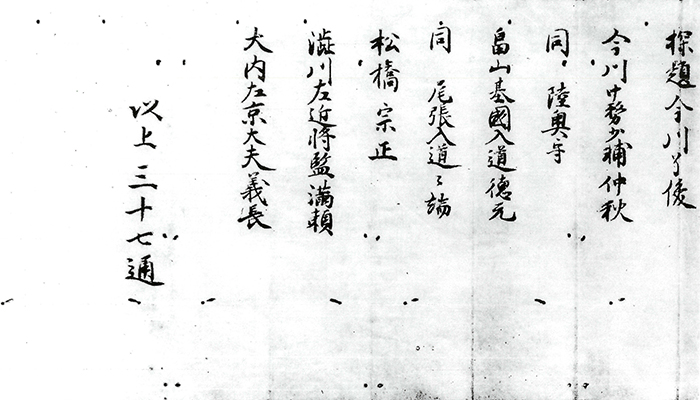 探題今川了俊
今川中務少補仲秋
同 陸奥守
畠山基國入道徳元
同 尾張入道々端
松橋宗正
澁川左近将監満頼
大内左京大夫義長
以上三十七通